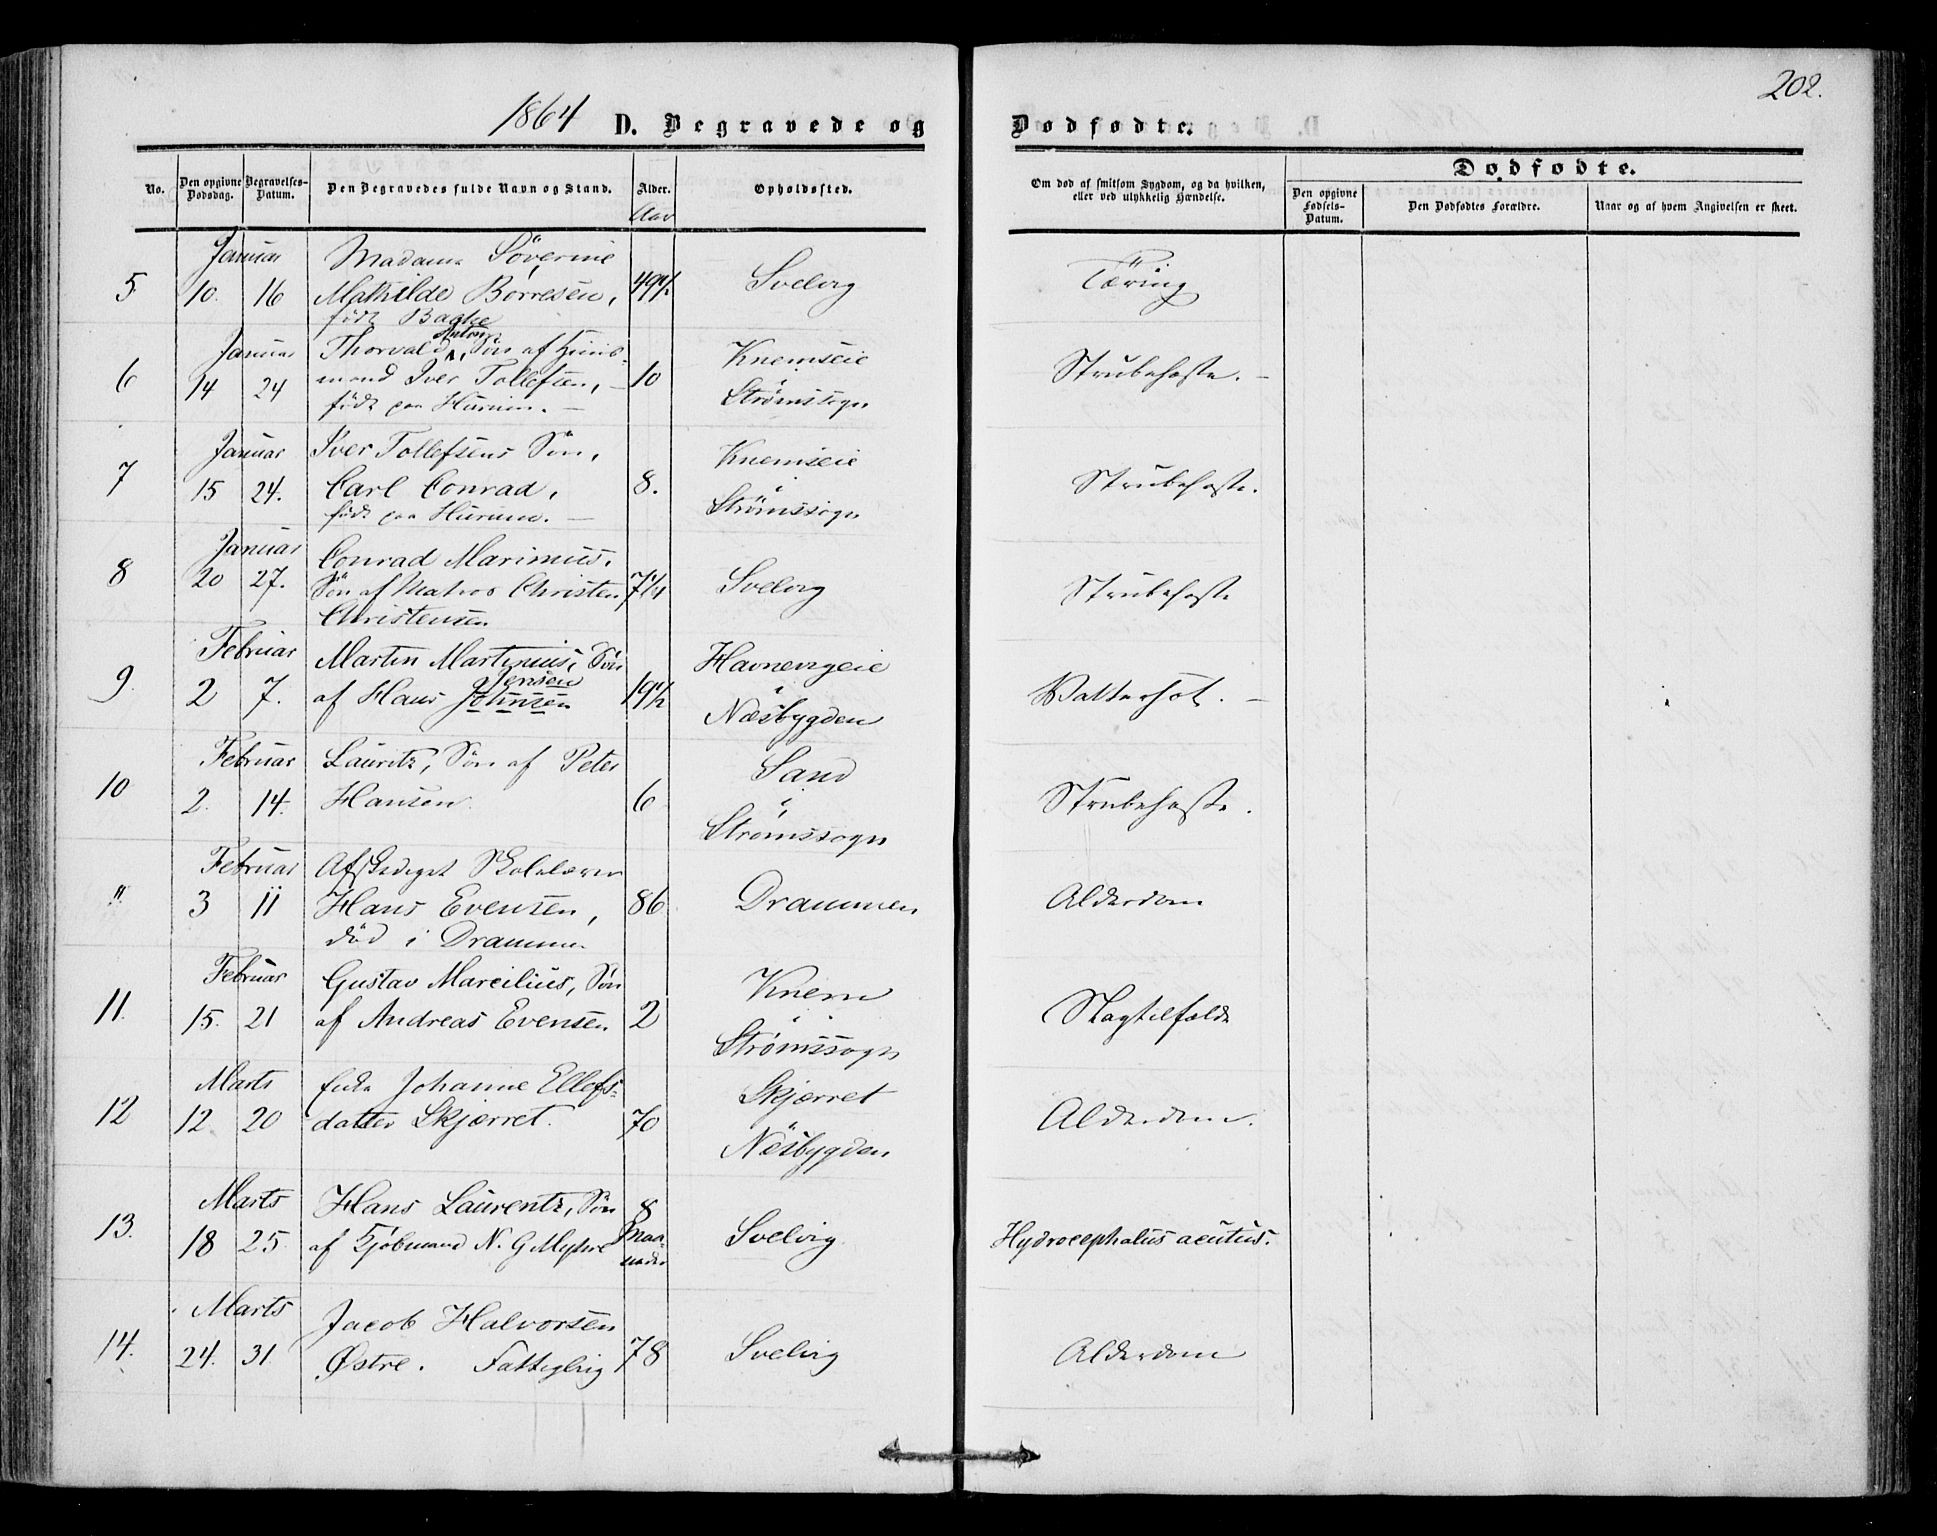 202.
1864 D. Begravede og Dødfødte.
No. Den opgivne Dødsdag. Begravelses-Datum. Den Begravedes fulde Navn og Stand. Alder. Opholdssted. Om død af smitsom Sygdom, og da hvilken, eller ved ulykkelig Hændelse. Dødfødte.
Den opgivne Fødsels-Datum. Den Dødfødtes Forældre. Naar og af hvem Angivelsen er skeet.
Aar
Januar Madame Söverine
5 10. 16 Mathilde Börresen, 49 1/2 Svelvig Tæring
født Bache
Januar Thorvald Anton, Søn af Huus- Knemseie
6 14 24 mand Iver Tollefsen, 10 Strubehoste.
født paa Hurum. Strømssogn
Januar Iver Tollefsens Søn, Knemseie
7 15 24. Carl Conrad, 8. Strubehoste.
født paa Hurum. Strømssogn
Januar Conrad Marinius,
8 20 27. Søn af Matros Christen 7 1/4 Svelvig Strubehoste
Christensen
Februar Martin Martinius, Søn Havnevigeie
9. 2 7. af Hans Johnsen Jensen 19 1/2 Vattersot.
Næsbygden
Februar Lauritz, Søn af Peter Sand
10 2. 14. Hansen. 6 Strubehoste.
Strømssogn
Februar Afskediget Skolelærer
" 3 11 Hans Evensen, 86 Drammen Alderdom
død i Drammen
Februar Gustav Marcilius, Søn Knem
11. 15. 21 af Andreas Evensen 2 Slagtilfælde
Strømssogn
Marts Enke Johanne Ellefs- Skjærret
12 12. 20 datter Skjærret. 70 Alderdom.
Næsbygden
Marts Hans Laurentz, Søn 8
13. 18 25. af Kjøbmand N. G Myhre Maaneder Svelvig. Hydrocephalus acutus.
Marts Jacob Halvorsen
14. 24. 31. Østre. Fattiglem 78 Svelvig Alderdom